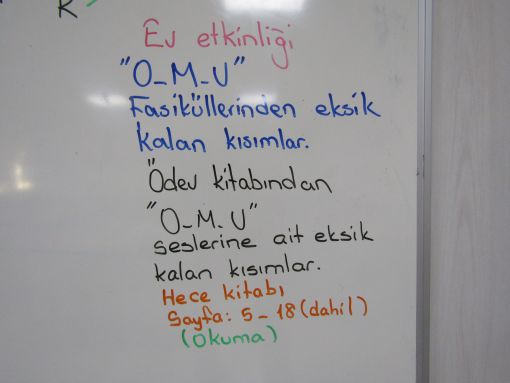 K
Ev etkinliği
"O-M-U"
Fasiküllerinden eksik
kalan kısımlar.
"Ödev kitabından
"O-M-U"
seslerine ait eksik
kalan kısımlar.
Hece kitabı
Sayfa: 5-18 (dahil)
(Okuma)